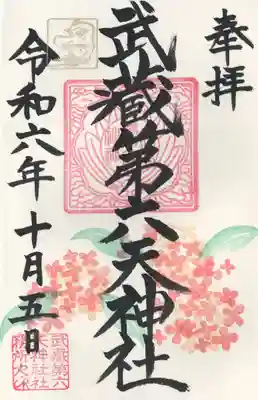 奉拝
武蔵第六天神社
令和六年十月五日
武蔵第六
天神社社
務所之印